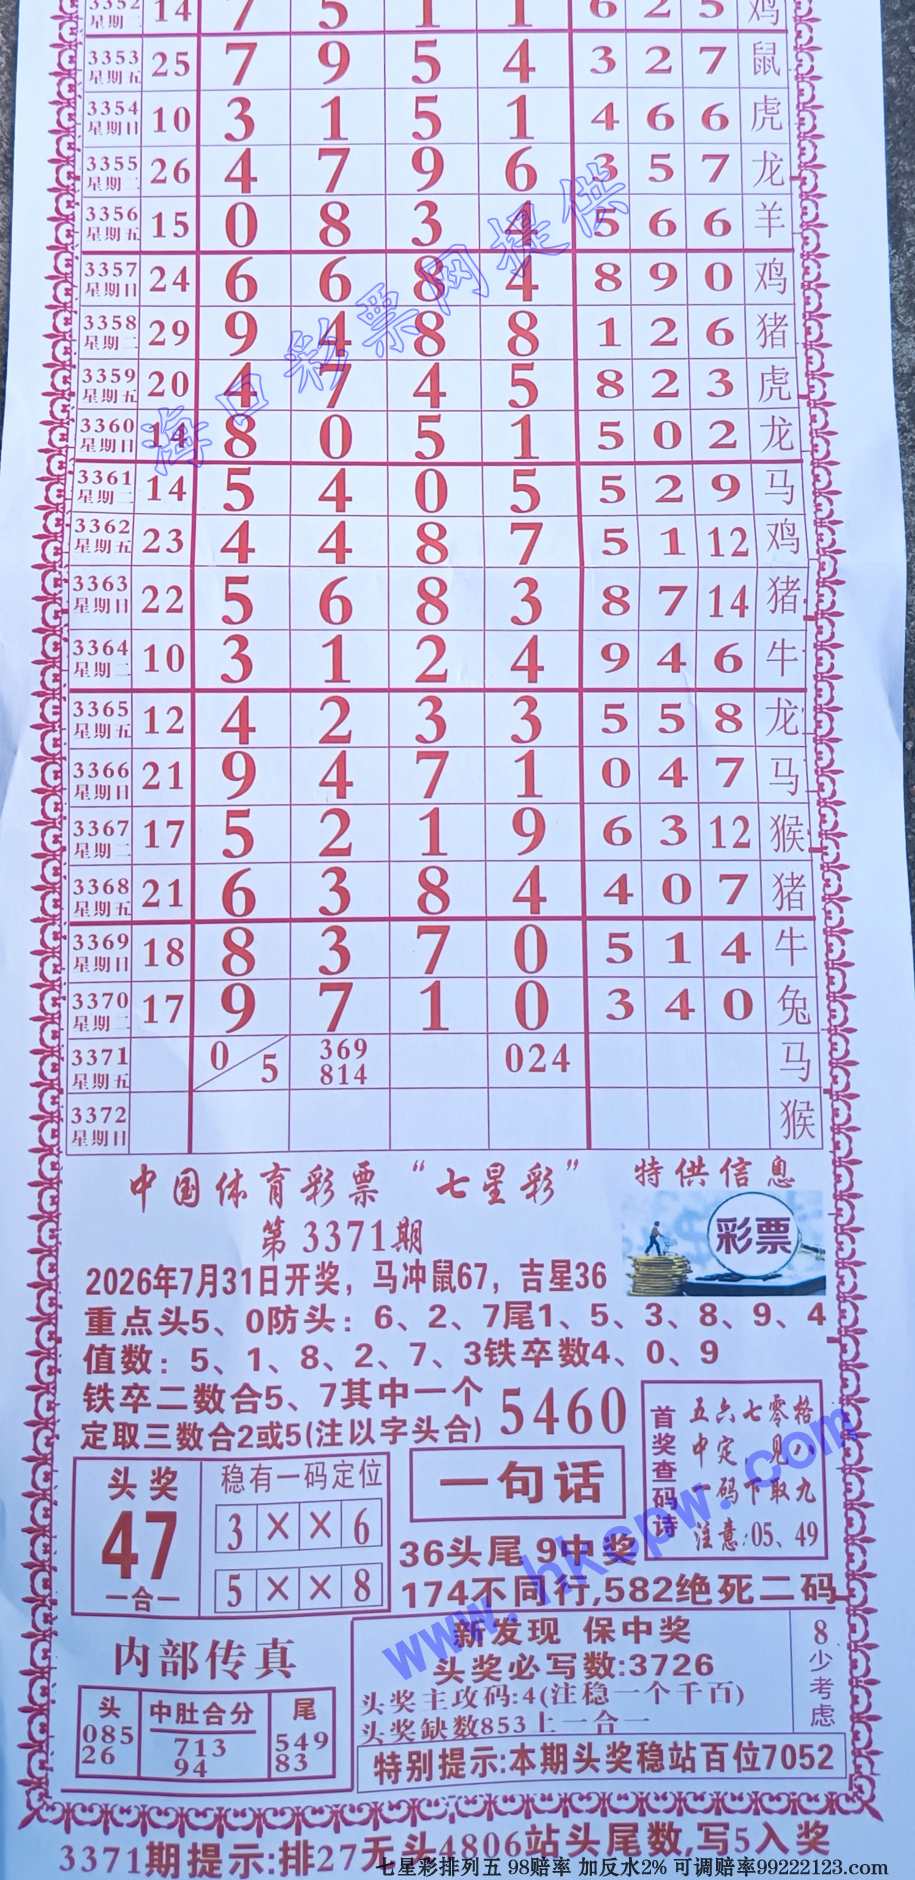 3352 星期二 14 7 5 1 1 6 2 5 鸡
3353 星期五 25 7 9 5 4 3 2 7 鼠
3354 星期日 10 3 1 5 1 4 6 6 虎
3355 星期二 26 4 7 9 6 3 5 7 龙
3356 星期五 15 0 8 3 4 5 6 6 羊
3357 星期日 24 6 6 8 4 8 9 0 鸡
3358 星期二 29 9 4 8 8 1 2 6 猪
3359 星期五 20 4 7 4 5 8 2 3 虎
3360 星期日 14 8 0 5 1 5 0 2 龙
3361 星期二 14 5 4 0 5 5 2 9 马
3362 星期五 23 4 4 8 7 5 1 12 鸡
3363 星期日 22 5 6 8 3 8 7 14 猪
3364 星期二 10 3 1 2 4 9 4 6 牛
3365 星期五 12 4 2 3 3 5 5 8 龙
3366 星期日 21 9 4 7 1 0 4 7 马
3367 星期二 17 5 2 1 9 6 3 12 猴
3368 星期五 21 6 3 8 4 4 0 7 猪
3369 星期日 18 8 3 7 0 5 1 4 牛
3370 星期二 17 9 7 1 0 3 4 0 兔
3371 星期五 0/5 369 814 024 马
3372 星期日 猴
海口彩票网提供
中国体育彩票“七星彩” 特供信息
第3371期
彩票
2026年7月31日开奖，马冲鼠67，吉星36
重点头5、0防头：6、2、7尾1、5、3、8、9、4
值数：5、1、8、2、7、3铁卒数4、0、9
铁卒二数合5、7其中一个
定取三数合2或5(注以字头合)
5460
首奖查码诗
五六七零格
中定 见八
一码下取九
注意:05、49
头奖
47
一合一
稳有一码定位
3 × × 6
5 × × 8
一句话
36头尾 9中奖
174不同行,582绝死二码
www.hkcpw.com
内部传真
头 085 26
中肚合分 713 94
尾 549 83
新发现 保中奖
头奖必写数:3726
头奖主攻码:4(注稳一个千百)
头奖缺数853上一合一
8少考虑
特别提示:本期头奖稳站百位7052
3371期提示:排27无头4806站头尾数,写5入奖
七星彩排列五 98赔率 加反水2% 可调赔率99222123.com